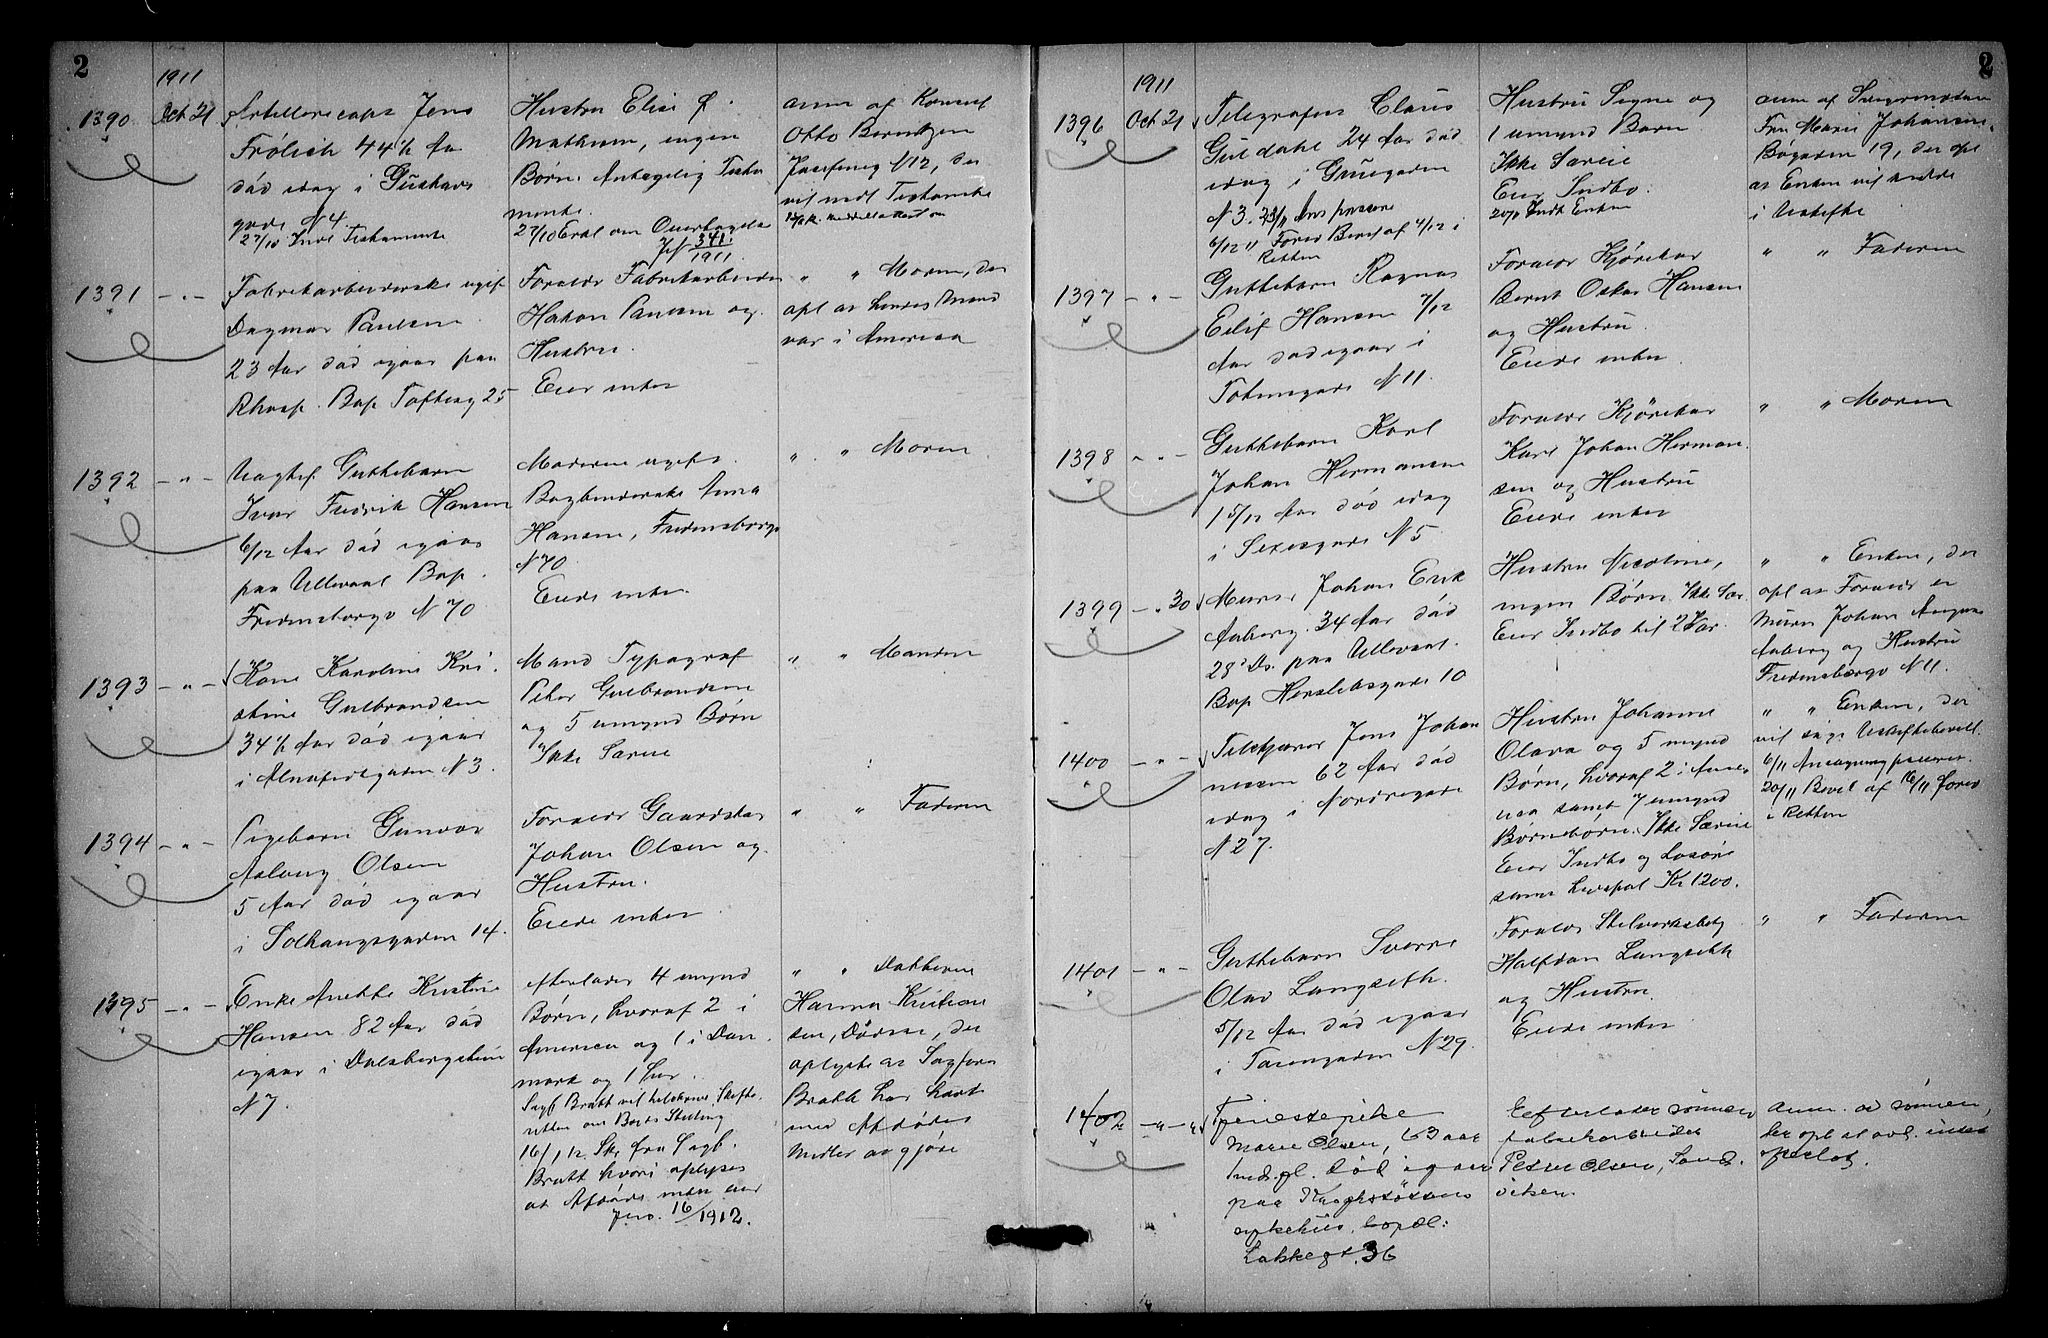 2
1911
1390 Oct 21
Artillericapt Jens
Frølich 44½ Aar
død idag i Gustavs
gade N 4.
27/10 Indl Testamente
Hustru Elise f.
Mathiesen, ingen
Børn. Antagelig Testa
mente.
27/10 Erkl om Overtagelse
JN 341/1911
anm af Konsul
Otto Berntzen
Josefineg N 12, der
vil indl Testamente
1391 - " -
Fabrikarbeiderske ugift
Dagmar Paulsen
23 Aar død igaar paa
Rhosp. Bop Toftesg 25
Forældr Fabrikarbeider
Hakon Paulsen og
Hustru.
Eier intet
" " Moren, der
opl at hendes Mand
var i America
1392 - " -
Uægtef. Guttebarn
Ivar Fredrik Hansen
6/12 Aar død igaar
paa Ullevaal Bop.
Fredensborgv N 70
Moderen ugift
Bogbinderske Anna
Hansen, Fredensborgv
N 70
Eiede intet.
" " Moren
1393 - " -
Kone Karoline Kri
stine Gulbrandsen
34½ Aar død igaar
i Alnafetgaden N 3.
Mand Typograf
Peter Gulbrandsen
og 5 umynd Børn
Ikke Særeie
" " Manden
1394 - " -
Pigebarn Gunvor
Aslaug Olsen
5 Aar død igaar
i Solhaugsgaden 14.
Forældr Gaardskar
Johan Olsen og
Hustru.
Eiede intet
" " Faderen
1395 - " -
Enke Anette Kristine
Hansen 82 Aar død
igaar i Dalsbergstien
N 7.
efterlader 4 mynd
Børn, hvoraf 2 i
America og 1 i Dan
mark og 1 her.
Sagf Bratt vil tilskrive Skifte
retten om Boets Stilling
16/1 12. Skr fra Sagf.
Bratt hvori oplyses
at Afdøde intet eier
Jno. 16/1912.
" " Datteren
Hanna Kristian
sen, Dødsbo, der
oplyste at Sagfører
Bratt har havt
med Afdødes
Midler at gjøre
2
1911
1396 Oct 21
Telegrafist Claus
Guldahl 24 Aar død
idag i Grusgaden
N 3.
6/12 11 Forev Bevil af 4/12 i
Retten
Hustru Signe og
1 umynd Barn
Ikke Særeie
Eier Indbo.
20/11 Indk Enken
anm af Svigermoderen
Fru Marie Johansen,
Bogaden 19, der opl
at Enken vil sidde
i Uskifte
1397 - " -
Guttebarn Ragnar
Eilif Hansen 7/12
Aar død igaar i
Totensgade N 11.
Forældr Kjørekar
Bernt Oskar Hansen
og Hustru.
Eiede intet
" " Faderen
1398 - " -
Guttebarn Karl
Johan Hermansen
1 5/12 Aar død idag
i Sexesgade N 5
Forældr Kjørekar
Karl Johan Herman
sen og Hustru
Eiede intet
" " Moren
1399 - " 30
Murer Johan Erik
Aaberg. 34 Aar død
28' Ds. paa Ullevaal.
Bop Herslebsgade 10
Hustru Nicoline,
ingen Børn. Ikke Sær.
Eier Indbo til 2 Vær.
" " Enken, der
opl at Forældr er
Murer Johan August
Aaberg og Hustru
Fredensborgv N 11.
1400 - " -
Telekjører Jens Johan
nessen 62 Aar død
idag i Nordregade
N 27.
Hustru Johanne
Olava og 5 mynd
Børn, hvoraf 2 i Ame
rica samt 7 umynd
Børnebørn. Ikke Særeie
Eier Indbo og Løsøre
samt Livspol Kr 1200.
" " Enken, der
vil søge Uskiftebevill.
6/11 Ansøgning passerer.
20/11 Bevil af 16/11 forev
i Retten
1401 - " -
Guttebarn Sverre
Olav Langseth.
5/12 Aar død igaar
i Toiengaden N 29.
Forældr
Halfdan Langseth
og Hustru.
Eiede intet
" " Faderen
1402 - " -
Tjenestepike
Marie Olsen, 63 aar
død igaar
paa
sykehus, bopæl:
Lakkegt. 36
Efterlader sønnen
fabrikarbeider
Petter Olsen, Sand.
viken.
Anm. av sønnen,
der opl at avd. intet
efterlot.